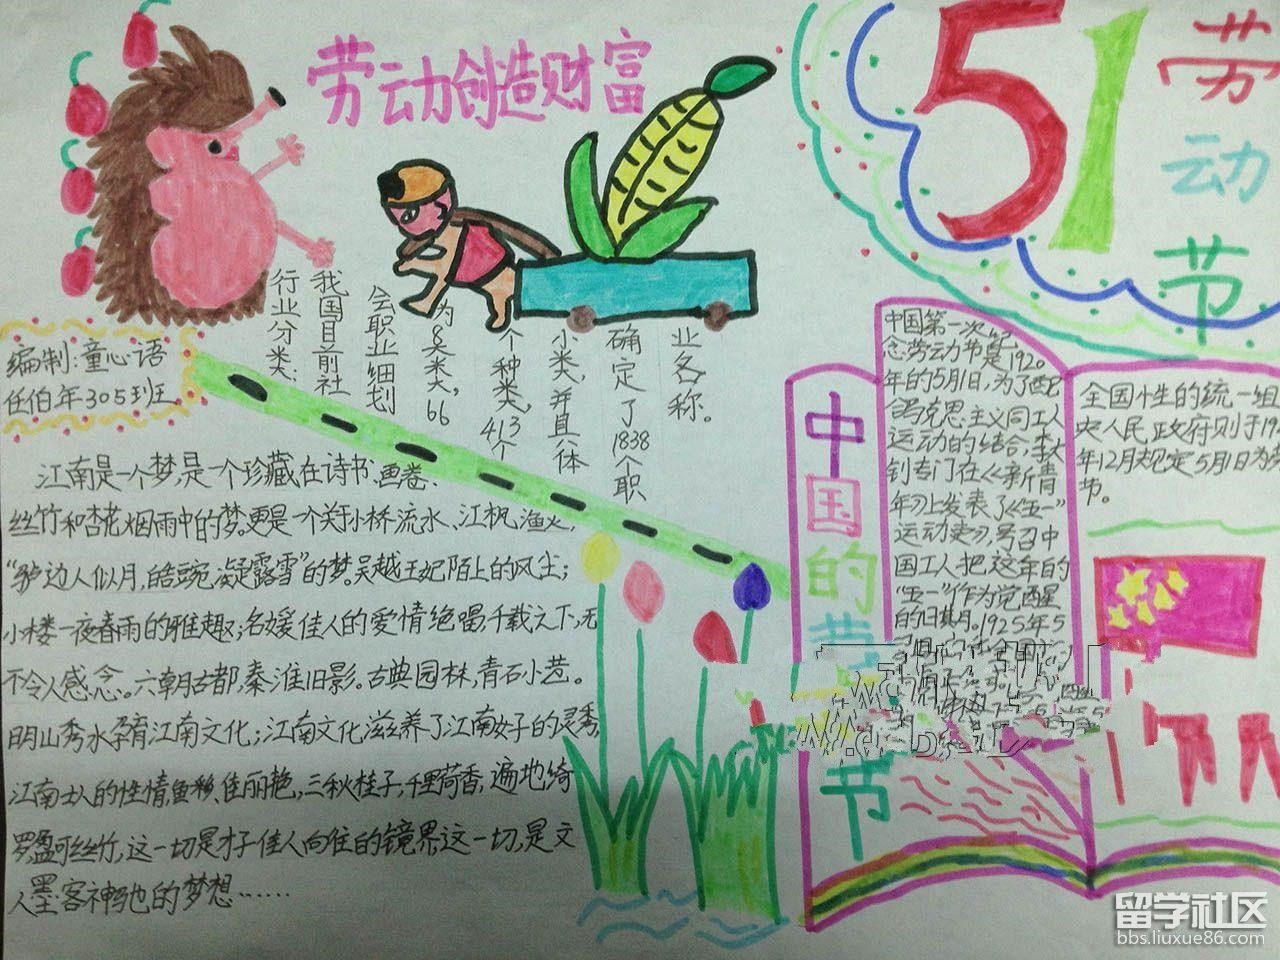 劳动创造财富
51
劳动节
编制:童心语
任伯年305班
我国目前社
会职业细划
为8类大,66
个种类,413个
小类,并具体
确定了1838个职
业名称。
行业分类:
江南是一个梦,是一个珍藏在诗书、画卷、
丝竹和杏花烟雨中的梦。更是一个关于小桥流水、江枫渔火,
“垆边人似月,皓豌凝露雪”的梦。吴越王妃陌上的风尘;
小楼一夜春雨的雅趣;名媛佳人的爱情绝唱,千载之下,无
不令人感念。六朝古都,秦淮旧影。古典园林,青石小巷。
明山秀水孕育江南文化;江南文化滋养了江南女子的灵秀,
江南士人的性情。鱼稼佳丽艳,三秋桂子,千里荷香,遍地绮
罗盈耳丝竹,这一切是才子佳人向住的镜界这一切,是文
人墨客神驰的梦想……
中国的劳
节
中国第一次纪
念劳动节是1920
年的5月1日,为了配
合马克思主义同工人
运动的结合,李大
钊专门在《新青
年》上发表了《“五一”
运动史》,号召中
国工人把这年的
“五一”作为觉醒
的日期。1925年5
全国性的统一组
央人民政府则于19
年12月规定5月1日为劳
节。
留学社区
bbs.liuxue86.com